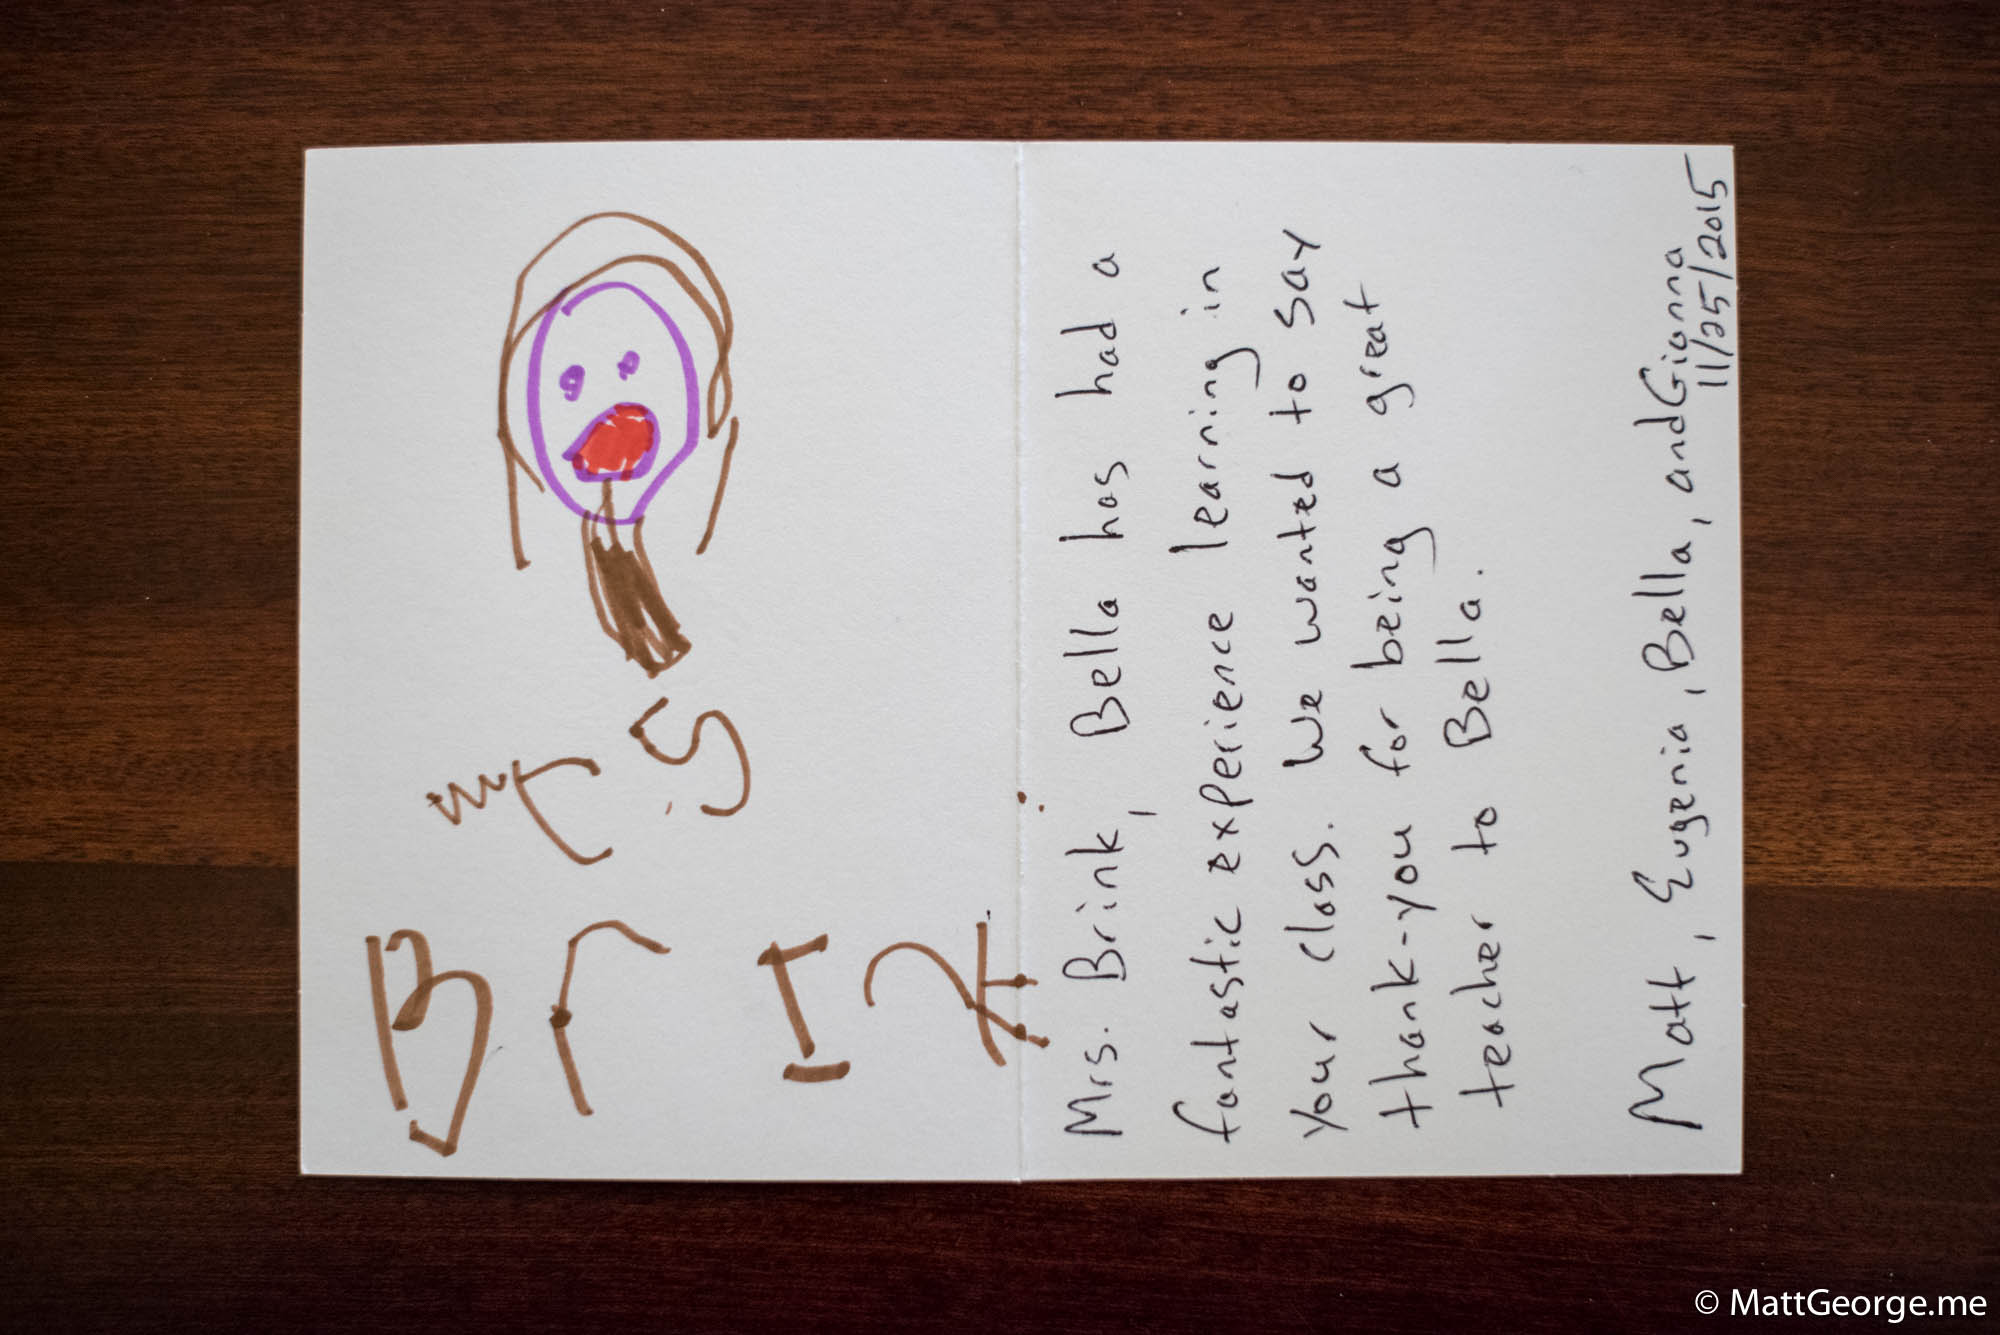 mrs
BrInK
Mrs. Brink, Bella has had a
fantastic experience learning in
your class. We wanted to say
thank-you for being a great
teacher to Bella.
Matt, Eugenia, Bella, and Gionna
11/25/2015
© MattGeorge.me